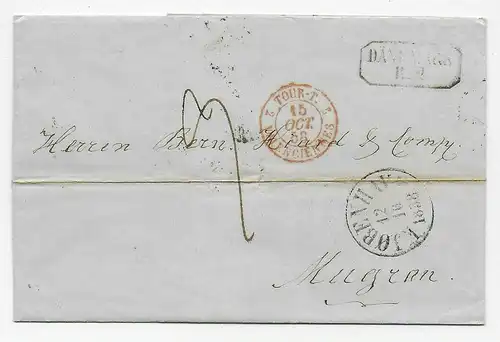 DÄNEMARK
R. 2
E TOUR-T. E
15
OCT.
58
VALENCIENNES
Herrn Bern. Huard & Comp.
KJØBENHAVN
12
10
1858
Mugron